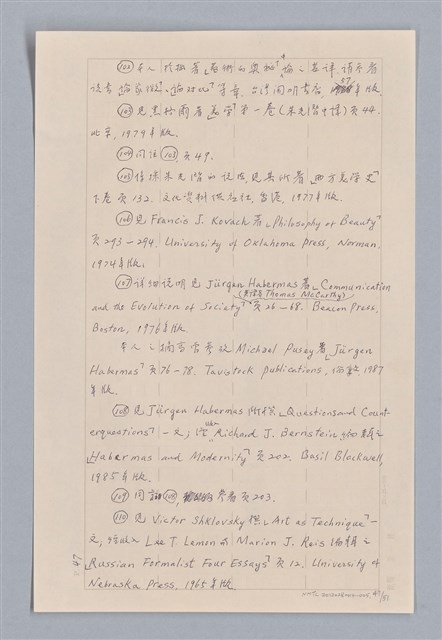 (102) 本人於拙著「藝術的奧秘」論之甚詳,請參看
該書「論象徵」、「論對比」等章。台灣開明書店,37年版。
(103) 見黑格爾著「美學」第一卷(朱光潛中譯)頁44.
北京,1979年版。
(104) 同注(103)頁49.
(105) 係採朱光潛的說法,見其所著「西方美學史」
下卷頁132. 文化資料供应社,香港,1977年版.
(106) 見Francis J. Kovach著「Philosophy of Beauty」
頁293-294. University of Oklahoma Press, Norman,
1974年版.
(107) 詳細說明見Jürgen Habermas著「Communication
(英譯者Thomas McCarthy)
and the Evolution of Society」頁26-68. Beacon Press,
Boston, 1976年版
本人之摘要當參攷Michael Pusey著「Jürgen
Habermas」頁76-78. Tavistock Publications, 倫敦,1987
年版.
(108) 見Jürgen Habermas所撰「Questions and Count-
erquestions」一文;從Richard J. Bernstein編之
「Habermas and Modernity」頁202. Basil Blackwell,
1985年版.
(109) 同註(108),參看頁203.
(110) 見Victor Shklovsky撰「Art as Technique」一
文,收入Lee T. Lemon及Marion J. Reis編輯之
「Russian Formalist Four Essays」頁12. University of
Nebraska Press, 1965年版
47
47/51